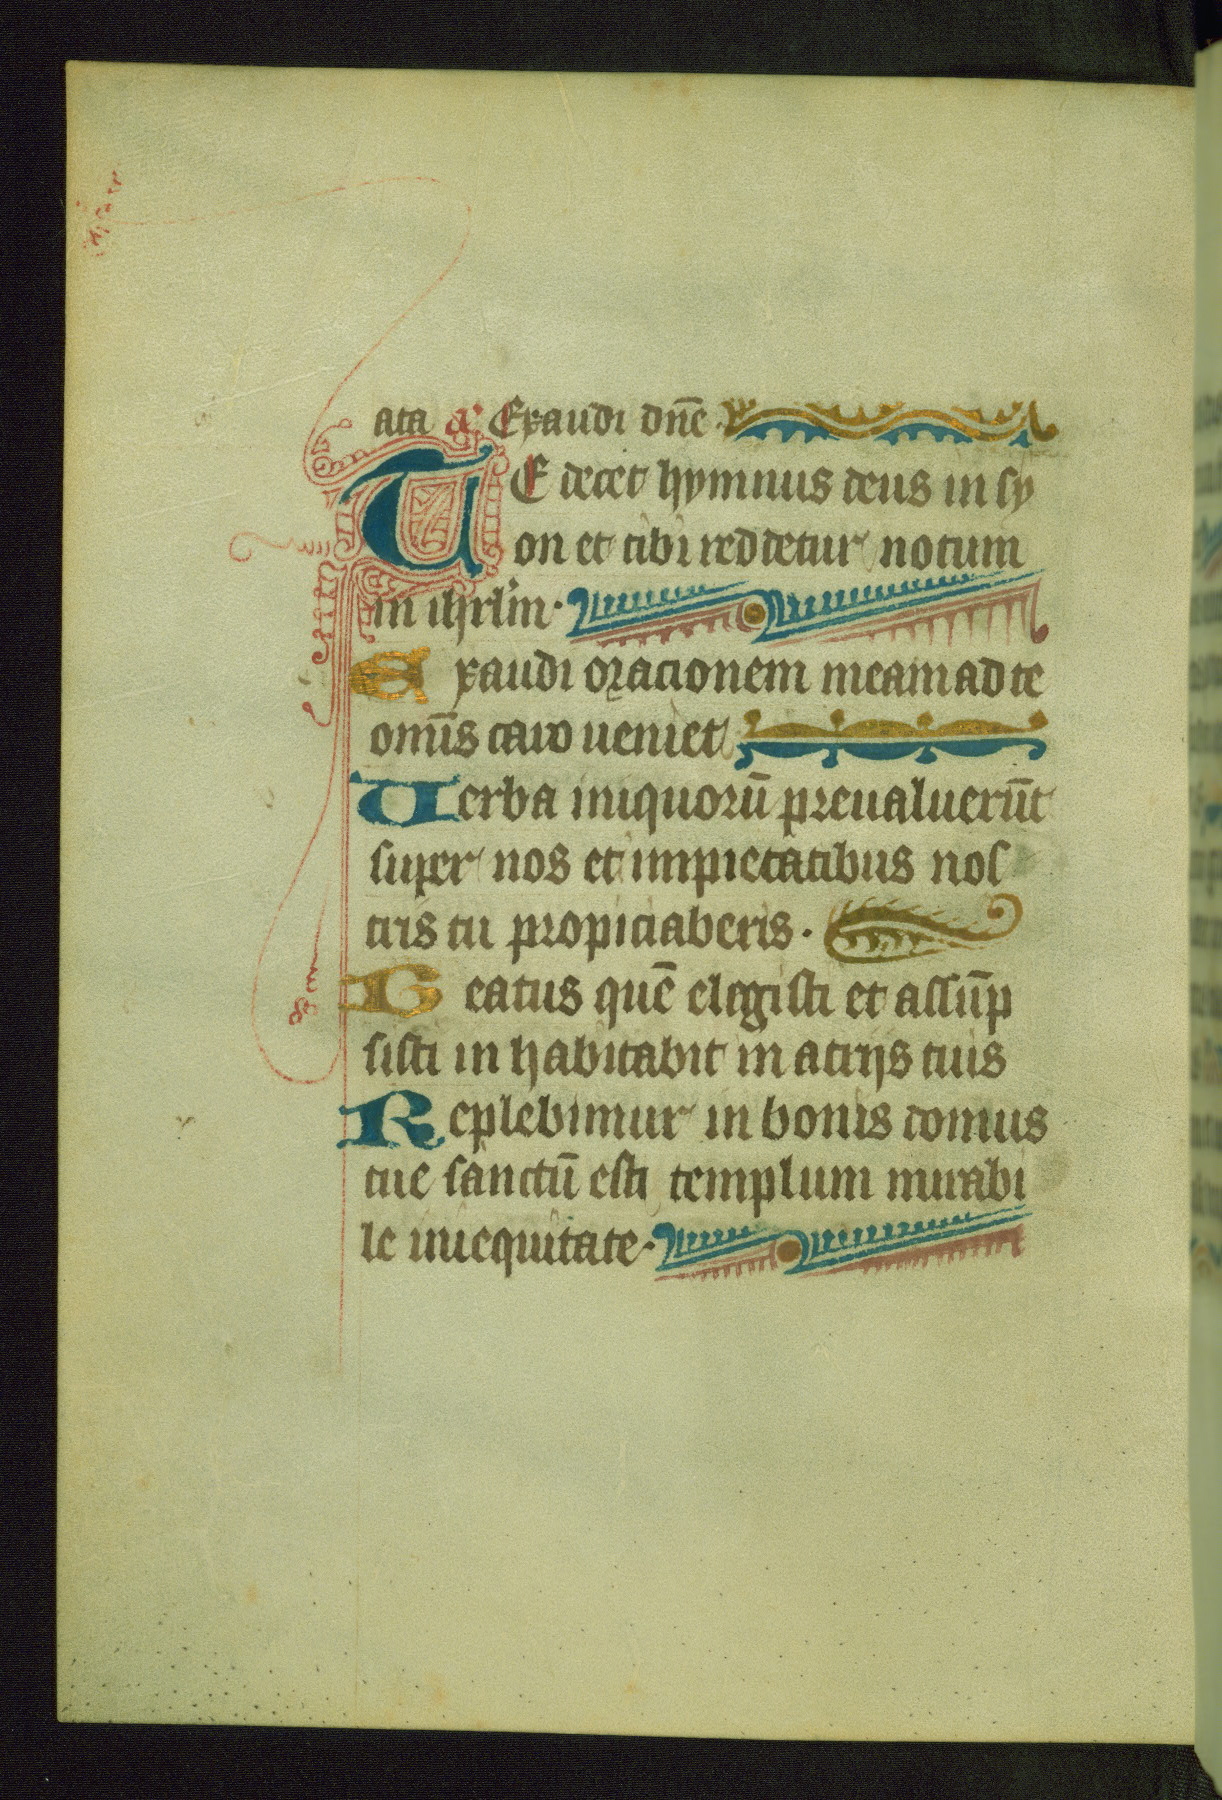 ata a᷒ Exaudi dn̄e
TE decet hymnus deus in sy
on et tibi reddetur uotum
in ihrl̄m·
Exaudi oracionem meam ad te
omīs caro ueniet
Uerba iniquorū preualuerūt
super nos et impietatibus nos
tris tu propiciaberis·
Beatus quē elegisti et assūp
sisti inhabitabit in atrijs tuis
Replebimur in bonis domus
tue sanctū est templum mirabi
le in equitate·